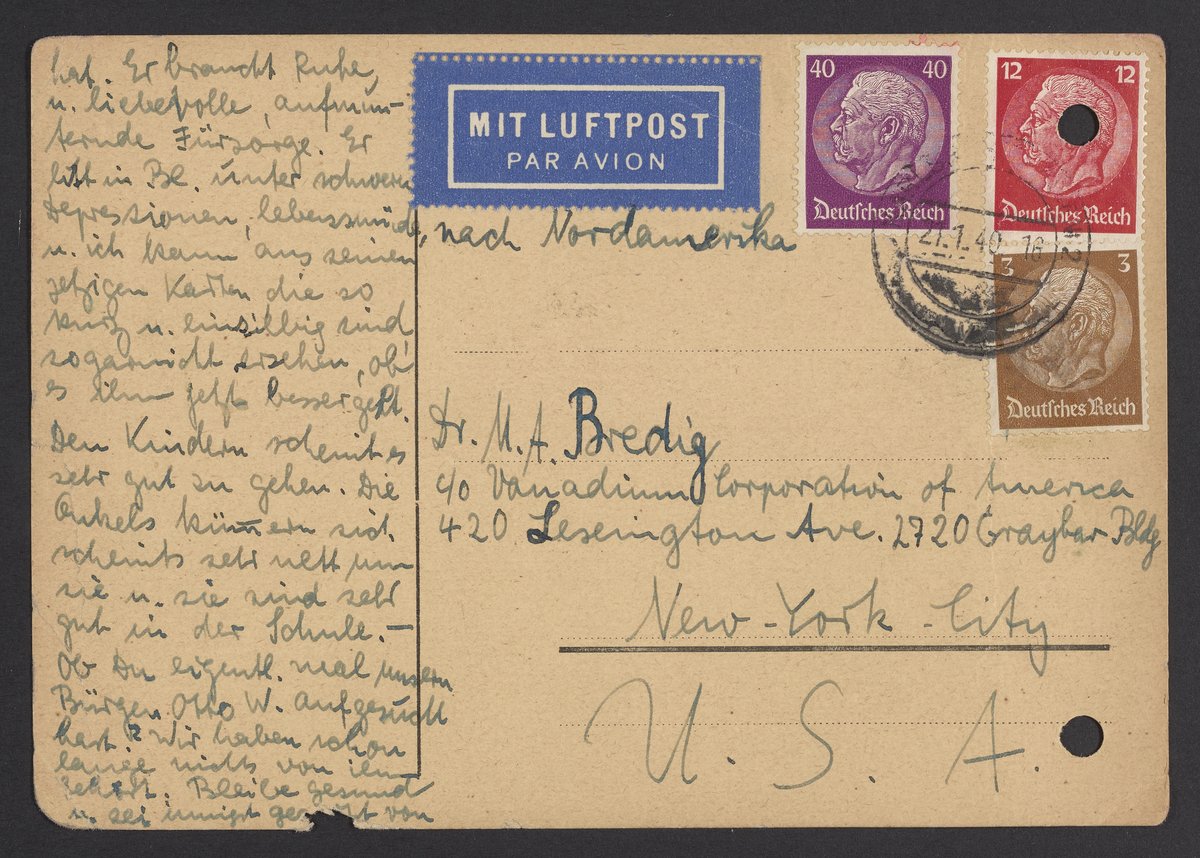 hat. Er braucht Ruhe,
u. liebevolle, aufmun-
ternde Fürsorge. Er
litt in Bl. unter schweren
Depressionen, lebensmüde,
u. ich kann aus seinen
jetzigen Karten die so
kurz u. einsilbig sind,
sogarnicht ersehen, ob
es ihm jetzt besser geht.
Den Kindern scheint es
sehr gut zu gehen. Die
Onkels kümern sich
scheints sehr nett um
sie u. sie sind sehr
gut in der Schule. —
Ob Du eigentl. mal unsern
Bürgen Otto W. aufgesucht
hast? Wir haben schon
lange nichts von ihm
gehört. Bleibe gesund
u. sei innigst von
MIT LUFTPOST
PAR AVION
nach Nordamerika
40 40
Deutsches Reich
12 12
Deutsches Reich
3 3
Deutsches Reich
21.1.40 16
Dr. M. A. Bredig
c/o Vanadium Corporation of America
420 Lexington Ave. 2720 Graybar Bldg
New-York-City
U. S. A.